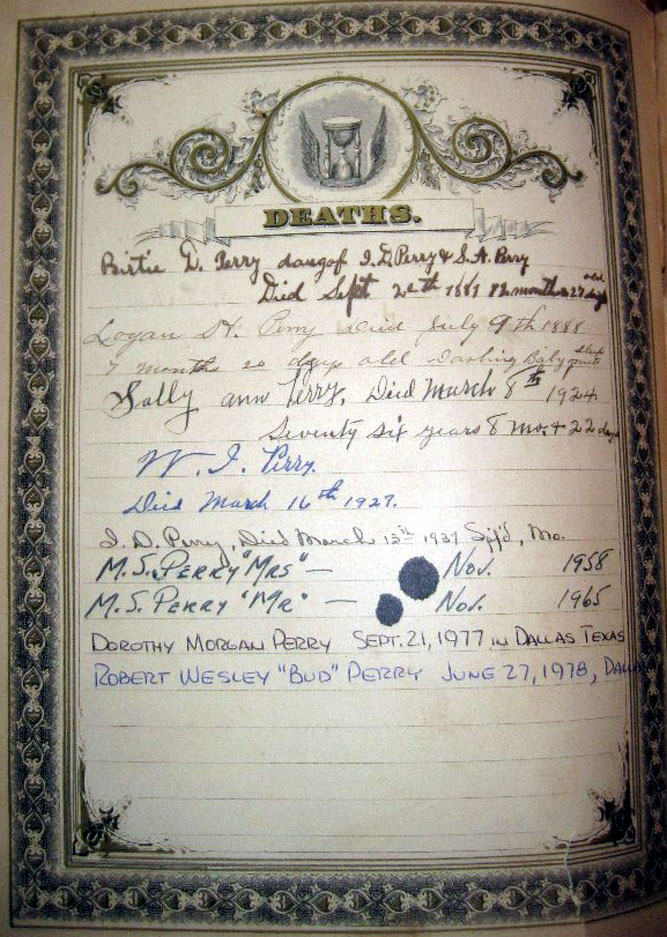 DEATHS.
Birtie D. Perry daug of I. D. Perry & S. A. Perry
old
Died Sept 1881 months 27 days
Logan H. Perry died July 9th 1888
7 months 20 days old Darling Baby
Sally ann Perry, Died March 8th 1924
Seventy six years 8 mo. & 22 days
W. I. Perry.
Died March 16th 1927.
I. D. Perry, Died March 1937 Spf'd, Mo.
M. S. PERRY "MRS" — Nov. 1958
M. S. PERRY "MR" — Nov. 1965
DOROTHY MORGAN PERRY SEPT. 21, 1977 IN DALLAS TEXAS
ROBERT WESLEY "BUD" PERRY JUNE 27, 1978,